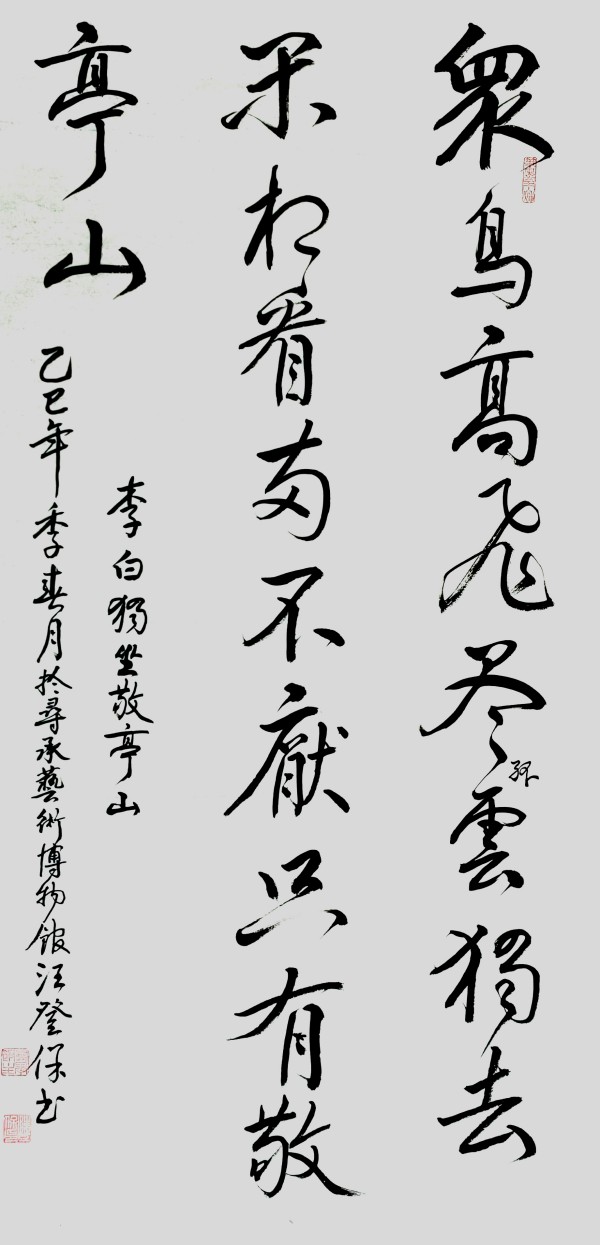 衆鳥高飛尽孤雲獨去
閑相看两不厭只有敬
亭山
李白獨坐敬亭山
乙巳年季春月於尋承藝術博物館汪登保书